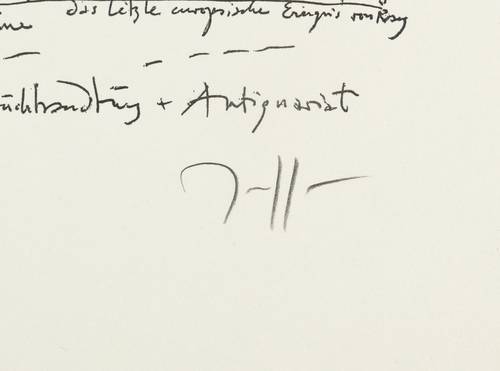 das letzte europäische Ereignis von
Buchhandlung + Antiquariat